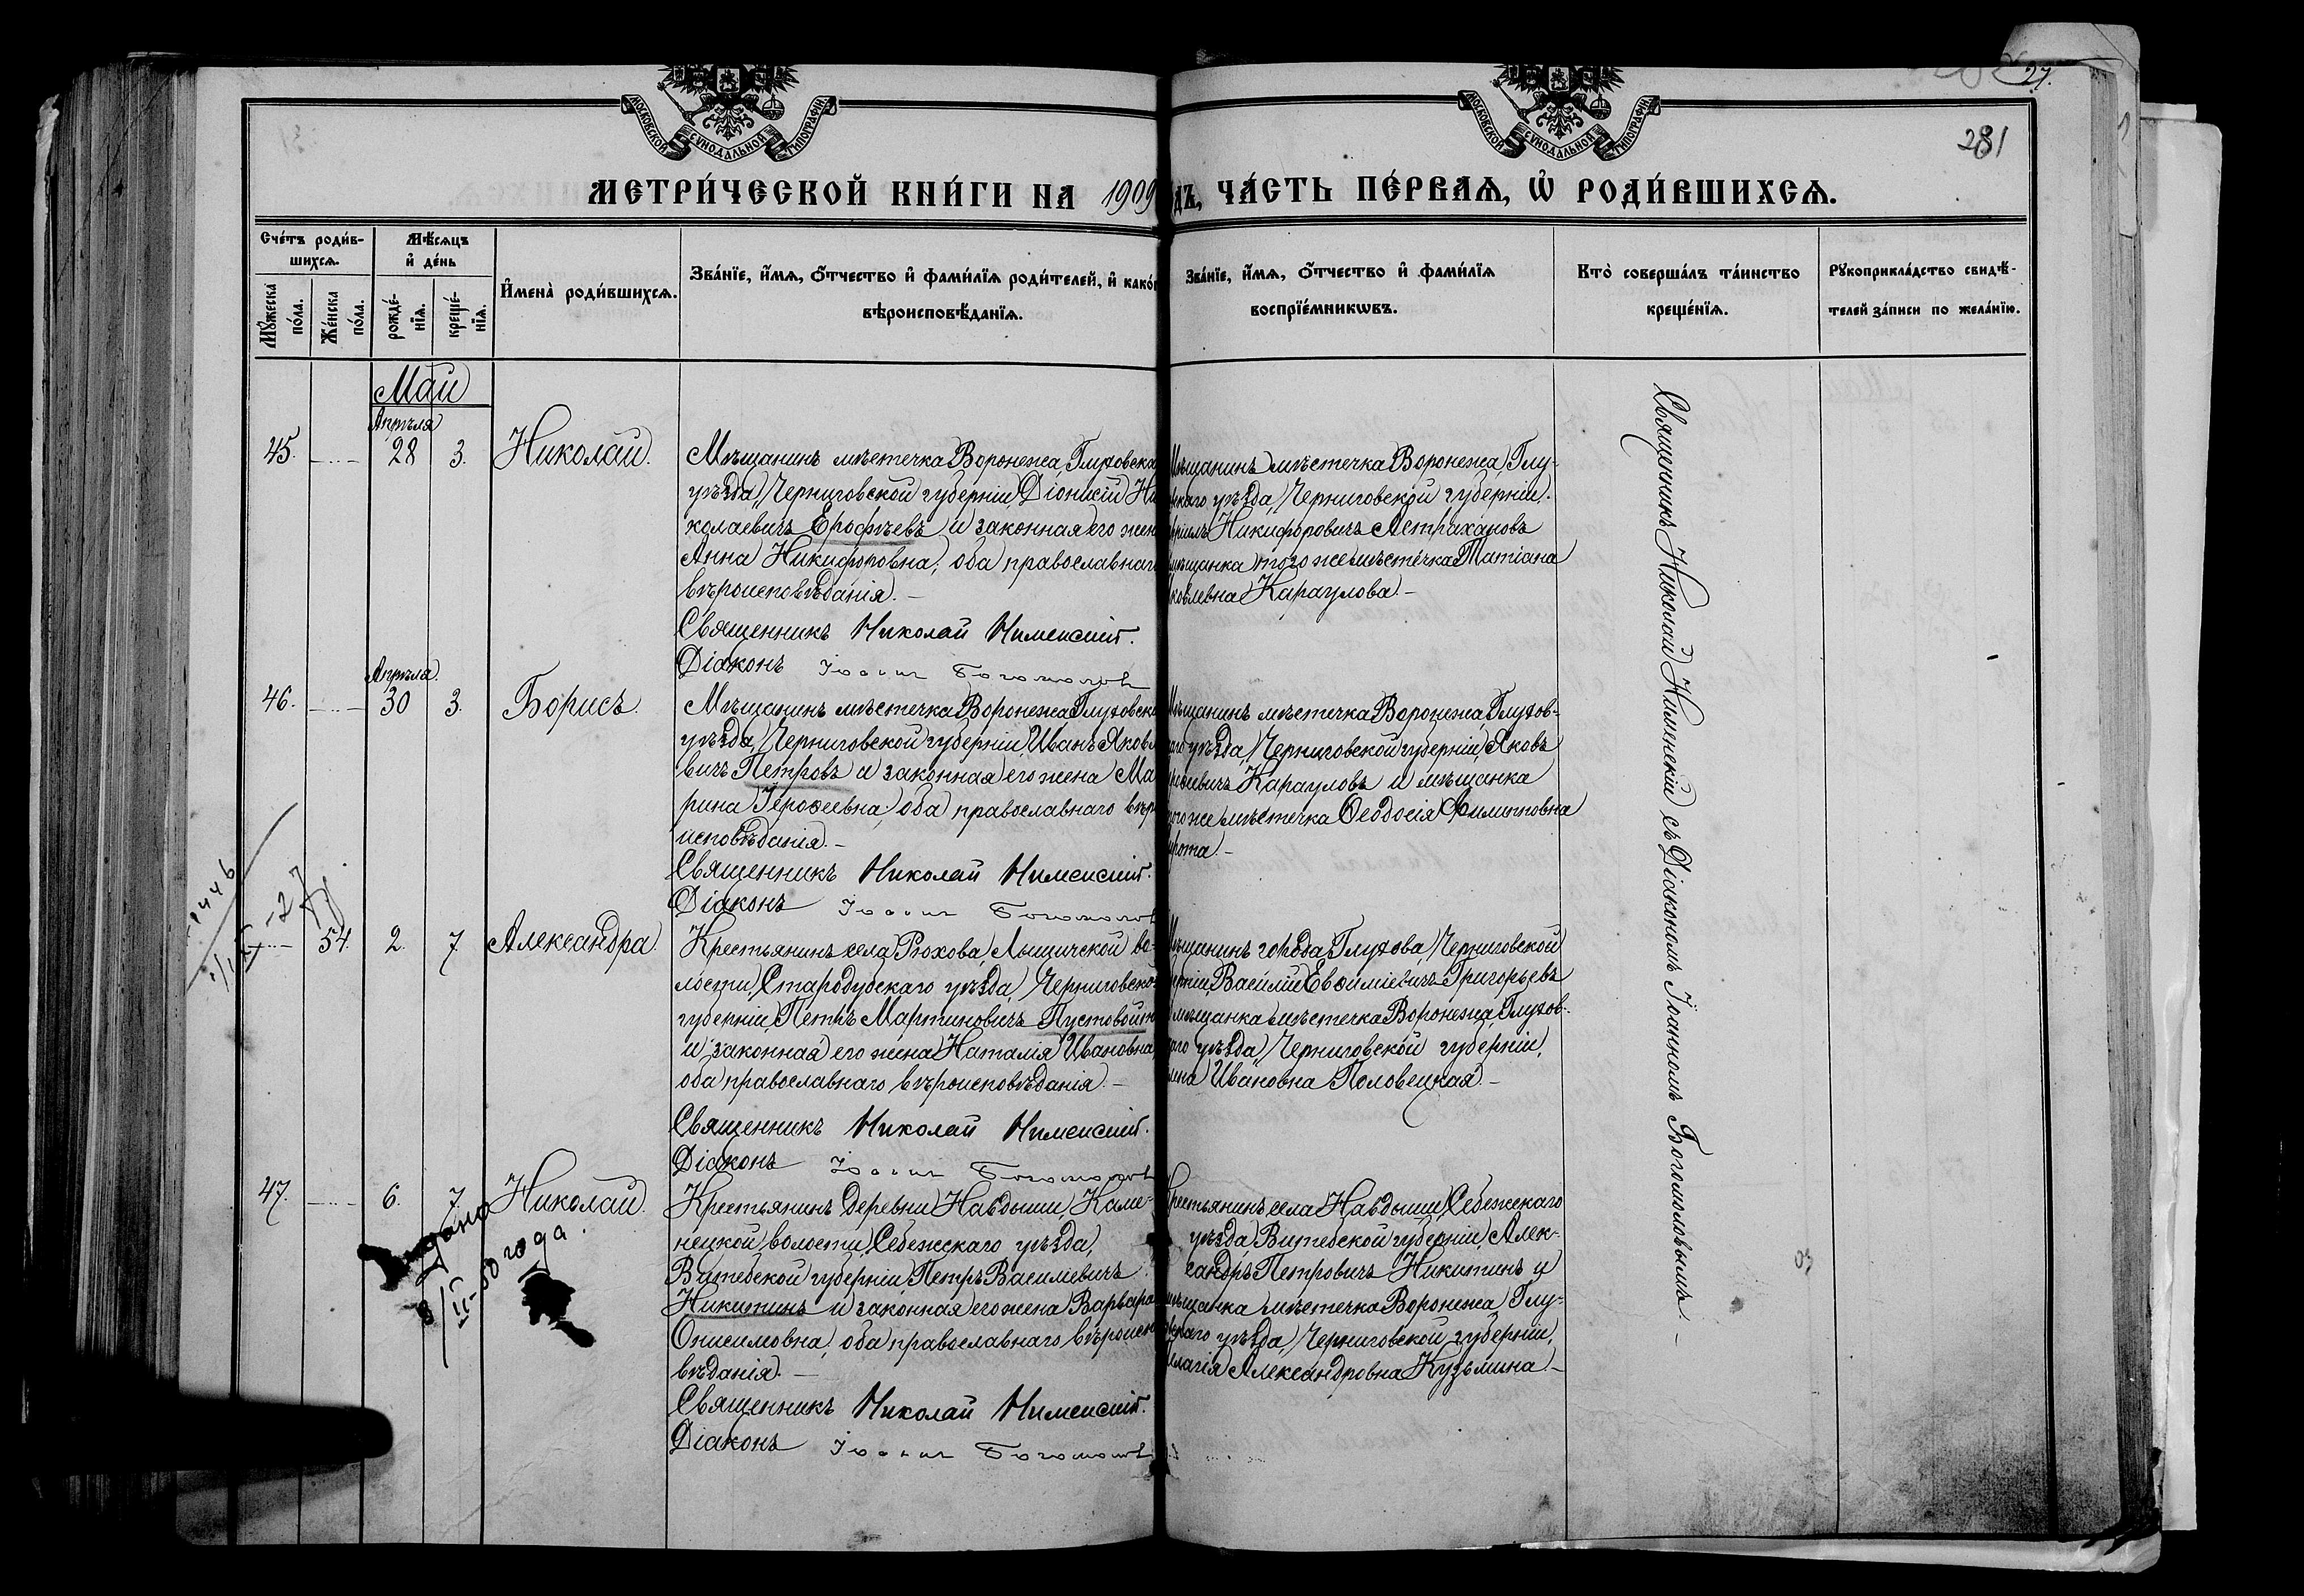 27.
281
МОСКОВСКОЙ СУНОДАЛЬНОЙ ТИПОГРАФІИ
МОСКОВСКОЙ СУНОДАЛЬНОЙ ТИПОГРАФІИ
МЕТРИ́ЧЕСКОЙ КНИ́ГИ НА 1909
дъ, ЧА́СТЬ ПЕ́РВАѦ, Ѡ҆ РОДИ́ВШИХСѦ.
Сче́тъ роди́в-
шихсѧ.
Мꙋ́жеска
по́ла.
Же́нска
по́ла.
Мѣ́сѧцъ
и҆ де́нь
рожде́-
нїѧ.
креще́-
нїѧ.
И҆мена̀ роди́вшихсѧ.
Зва́нїе, и҆́мѧ, ѻ҆́тчество и҆ фами́лїѧ роди́телей, и҆ како́г
вѣроисповѣ́данїѧ.
Зва́нїе, и҆́мѧ, ѻ҆́тчество и҆ фами́лїѧ
воспрїе́мникѡвъ.
Кто̀ соверша́лъ та́инство
креще́нїѧ.
Рꙋкоприкла́дство свидѣ́-
телей за́писи по жела́нїю.
Май
Апрѣля
45. 28 3. Николай.
Мѣщанинъ мѣстечка Воронежа, Глуховска
уѣзда, Черниговской губерніи, Діонисій Ни
колаевичъ Ерофѣевъ и законная его жен
Анна Никифоровна, оба православнаг
вѣроисповѣданія. —
Священникъ Николай Нименскій.
Діаконъ Іоаннъ Богомолов
Мѣщанинъ мѣстечка Воронежа, Глу-
скаго уѣзда, Черниговской губерніи.
Никифоровичъ Астрахановъ
мѣщанка того же мѣстечка Татіана
ковлевна Караулова. —
Апрѣля.
46. 30 3. Борисъ.
Мѣщанинъ мѣстечка Воронежа, Глуховска
уѣзда, Черниговской губерніи, Иванъ Яковл
вичъ Петровъ и законная его жена Ма
рина Іероѳеевна, оба православнаго вѣро
исповѣданія. —
Священникъ Николай Нименскій.
Діаконъ Іоаннъ Богомолов
Мѣщанинъ мѣстечка Воронежа, Глухов-
аго уѣзда, Черниговской губерніи, Яковъ
Карауловъ и мѣщанка
того же мѣстечка Ѳеодосія Филипповна
рота. —
54. 2. 7. Александра.
Крестьянинъ села Рюхова, Лыщичской во-
лости, Стародубскаго уѣзда, Черниговско
губерніи, Петръ Мартиновичъ Пустовойт
и законная его жена Наталія Ивановна
оба православнаго вѣроисповѣданія. —
Священникъ Николай Нименскій.
Діаконъ Іоаннъ Богомолов
Мѣщанинъ города Глухова, Черниговской
ерніи, Василій Евѳиміевичъ Григорьевъ
мѣщанка мѣстечка Воронежа, Глухов-
аго уѣзда, Черниговской губерніи,
Ивановна Половецкая. —
47. 6. 7. Николай.
Выдано
8/II-50 года.
Крестьянинъ деревни Навдыши, Каме-
нецкой волости, Себежскаго уѣзда,
Витебской губерніи, Петръ Василіевичъ
Никитинъ и законная его жена Варвара
Онисимовна, оба православнаго вѣроиспо
вѣданія. —
Священникъ Николай Нименскій.
Діаконъ Іоаннъ Богомолов
Крестьянинъ села Навдыши, Себежскаго
уѣзда, Витебской губерніи, Алек-
сандръ Петровичъ Никитинъ и
мѣщанка мѣстечка Воронежа, Глу-
скаго уѣзда, Черниговской губерніи,
елагія Александровна Кузьмина. —
Священникъ Николай Нименскій съ Діакономъ Іоанномъ Богомоловымъ. —